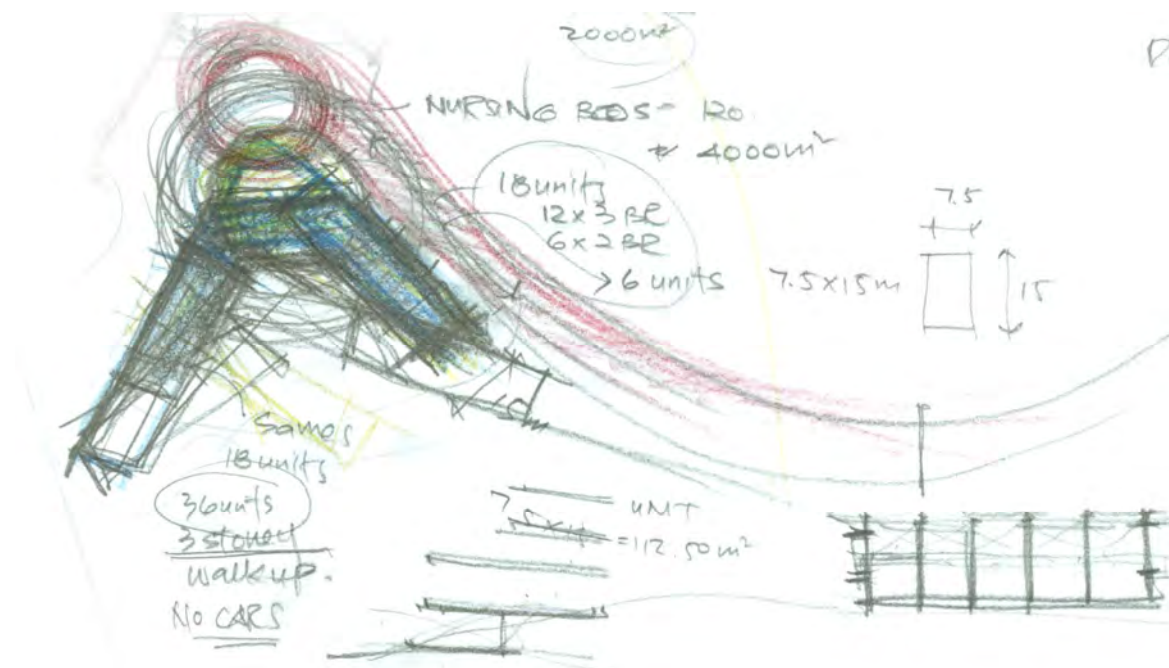 2000m²
NURSING BEDS - 120
4000m²
18 units
12 x 3 BR
6 x 2 BR
> 6 units
7.5 x 15m
7.5
15
Same
18 units
36 units
3 storey
walkup.
NO CARS
UNIT
= 112.50m²